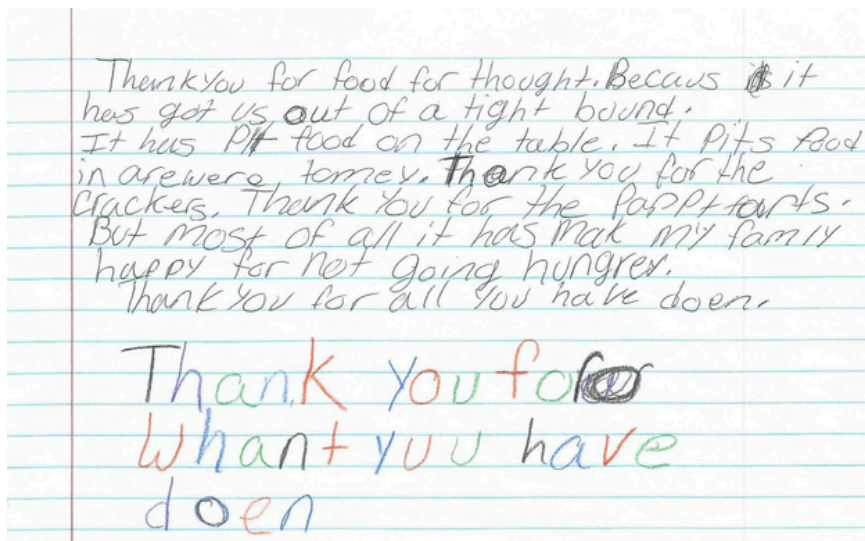 Thenkyou for food for thought. Becaus it
has got us out of a tight bound.
It has Pit food on the table. It Pits food
in arewere tomey. Thank you for the
Crackers. Thank You for the Pappttarts.
But most of all it has mak my family
happy for not going hungrey.
Thank You for all you have doen.
Thank you for
Whant yuu have
doen